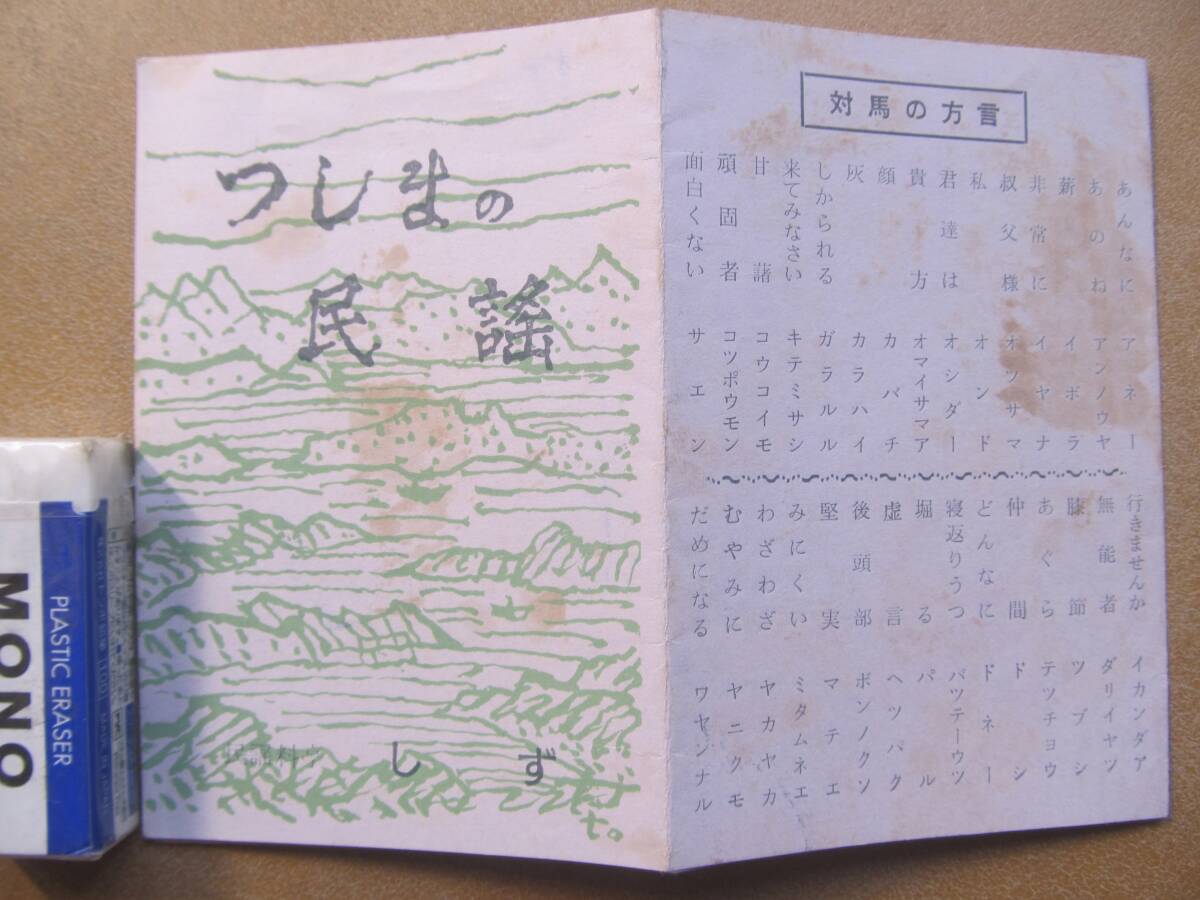 つしまの
民謡
民謡料亭 しず
対馬の方言
あんなに アネー
あのね アンノウヤ
薪 イボラ
非常に イヤナ
叔父様 オツサマ
私 オンド
君達は オシダー
貴方 オマイサマア
顔 カバチ
灰 カラハイ
しかられる ガラルル
来てみなさい キテミサシ
甘藷 コウコイモ
頑固者 コツポウモン
面白くない サエン
行きませんか イカンダア
無能者 ダリイヤツ
膝節 ツブシ
あぐら テツチョウ
仲間 ドシ
どんなに ドネー
寝返りうつ バツテーウツ
堀る パル
虚言 ヘツパク
後頭部 ボンノクソ
堅実 マテエ
みにくい ミタムネエ
わざわざ ヤカヤカ
むやみに ヤニクモ
だめになる ワヤンナル
MONO
PLASTIC ERASER